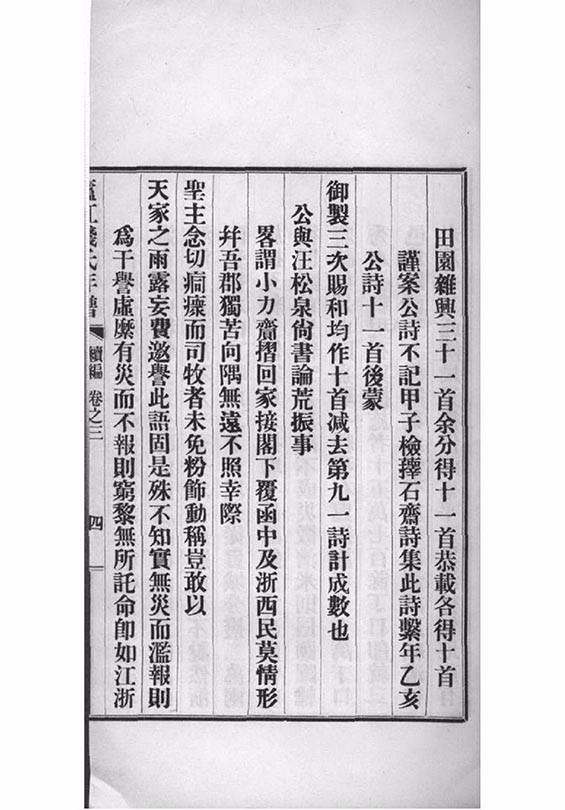 田園雜興三十一首余分得十一首恭載各得十首
謹案公詩不記甲子檢擇石齋詩集此詩繫年乙亥
公詩十一首後蒙
御製三次賜和均作十首減去第九一詩計成數也
公與汪松泉尙書論荒振事
畧謂小力齎摺回家接閣下覆函中及浙西民莫情形
幷吾郡獨苦向隅無遠不照幸際
聖主念切痌瘝而司牧者未免粉飾動稱豈敢以
天家之雨露妄費邀譽此語固是殊不知實無災而濫報則
爲干譽虛縻有災而不報則窮黎無所託命卽如江浙
廬江錢氏年譜 續編 卷之三 四